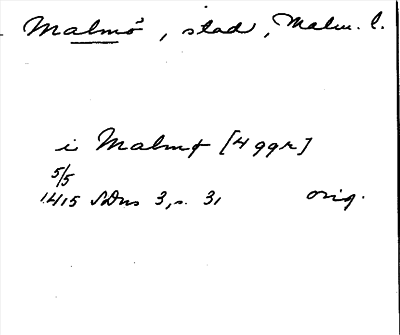 Malmö, stad, Malm. l.
i Malmø [4 ggr]
5/5
1415 SDns 3, s. 31 orig.